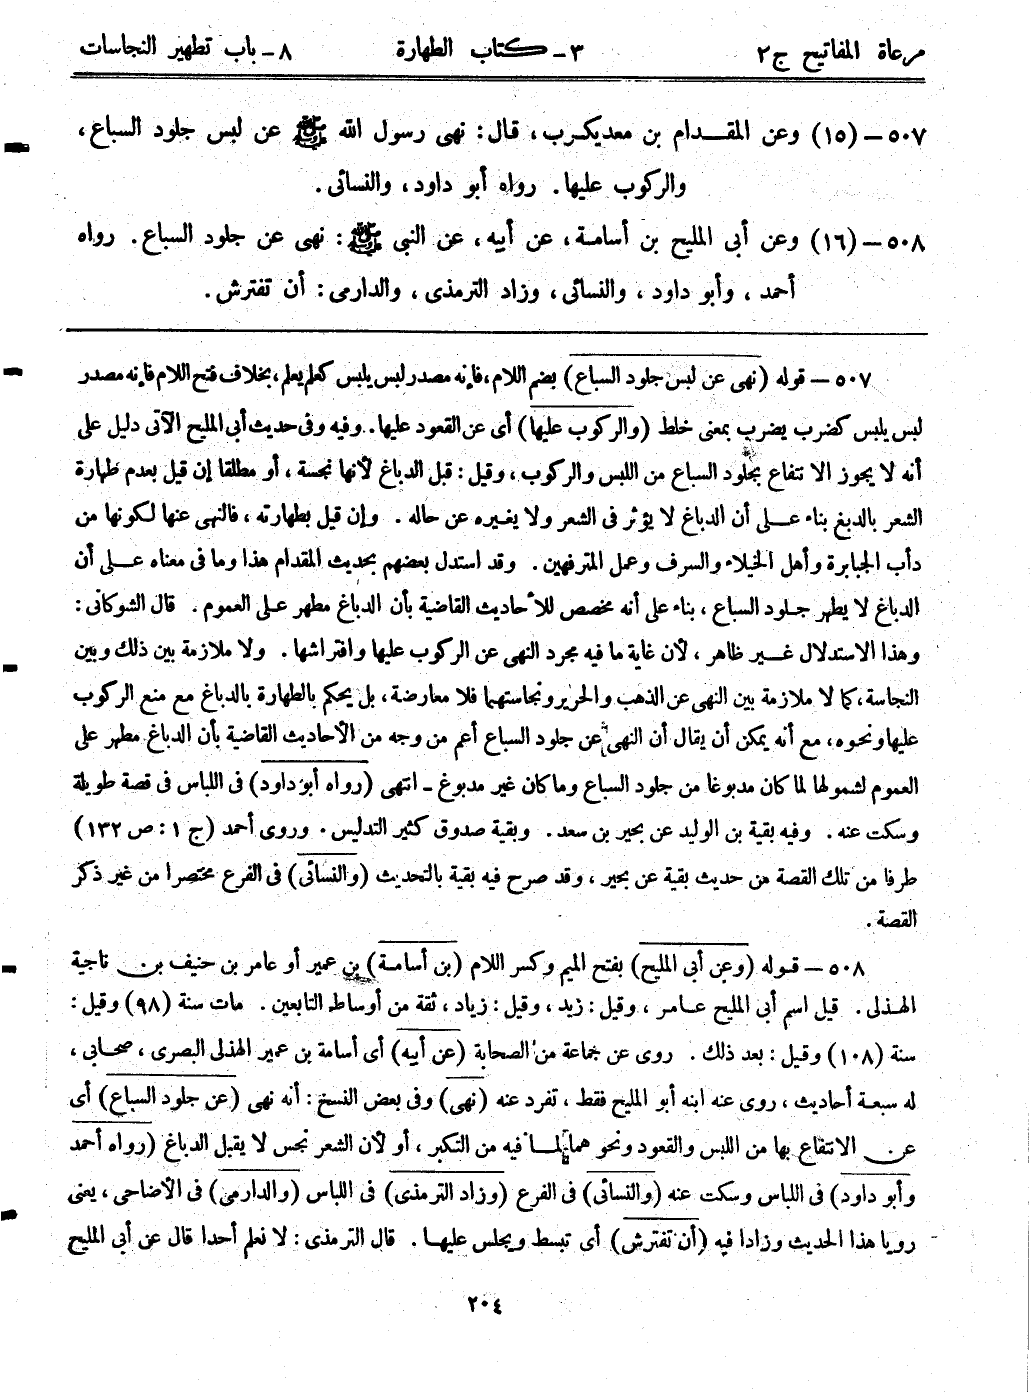 مرعاة المفاتيح ج٢ ٣ـ كتاب الطهارة ٨ـ باب تطهير النجاسات
٥٠٧ ـ (١٥) وعن المقدام بن معديكرب، قال: نهى رسول الله ﷺ عن لبس جلود السباع،
والركوب عليها. رواه أبو داود، والنسائى.
٥٠٨ ـ (١٦) وعن أبى المليح بن أسامة، عن أبيه، عن النبى ﷺ: نهى عن جلود السباع. رواه
أحمد، وأبو داود، والنسائى، وزاد الترمذى، والدارمى: أن تفترش.
٥٠٧ ـ قوله (نهى عن لبس جلود السباع) بضم اللام، فإنه مصدر لبس يلبس كعلم يعلم، بخلاف فتح اللام فإنه مصدر
لبس يلبس كضرب يضرب بمعنى خلط (والركوب عليها) أى عن القعود عليها. وفيه وفى حديث أبى المليح الآتى دليل على
أنه لا يجوز الانتفاع بجلود السباع من اللبس والركوب، وقيل: قبل الدباغ لأنها نجسة، أو مطلقا إن قيل بعدم طهارة
الشعر بالدبغ بناء على أن الدباغ لا يؤثر فى الشعر ولا يغيره عن حاله. وإن قيل بطهارته، فالنهى عنها لكونها من
دأب الجبابرة وأهل الخيلاء والسرف وعمل المترفهين. وقد استدل بعضهم بحديث المقدام هذا وما فى معناه على أن
الدباغ لا يطهر جلود السباع، بناء على أنه مخصص للأحاديث القاضية بأن الدباغ مطهر على العموم. قال الشوكانى:
وهذا الاستدلال غير ظاهر، لأن غاية ما فيه مجرد النهى عن الركوب عليها وافتراشها. ولا ملازمة بين ذلك وبين
النجاسة، كما لا ملازمة بين النهى عن الذهب والحرير ونجاستهما فلا معارضة، بل يحكم بالطهارة بالدباغ مع منع الركوب
عليها ونحوه، مع أنه يمكن أن يقال أن النهى عن جلود السباع أعم من وجه من الأحاديث القاضية بأن الدباغ مطهر على
العموم لشمولها لما كان مدبوغا من جلود السباع وما كان غير مدبوغ ـ انتهى (رواه أبو داود) فى اللباس فى قصة طويلة
وسكت عنه. وفيه بقية بن الوليد عن بحير بن سعد. وبقية صدوق كثير التدليس. وروى أحمد (ج ١: ص ١٣٢)
طرفا من تلك القصة من حديث بقية عن بحير، وقد صرح فيه بقية بالتحديث (والنسائى) فى الفرع مختصرا من غير ذكر
القصة.
٥٠٨ ـ قوله (وعن أبى المليح) بفتح الميم وكسر اللام (بن أسامة) بن عمير أو عامر بن حنيف بن ناجية
الهذلى. قيل اسم أبى المليح عامر، وقيل: زيد، وقيل: زياد، ثقة من أوساط التابعين. مات سنة (٩٨) وقيل:
سنة (١٠٨) وقيل: بعد ذلك. روى عن جماعة من الصحابة (عن أبيه) أى أسامة بن عمير الهذلى البصرى، صحابى،
له سبعة أحاديث، روى عنه ابنه أبو المليح فقط، تفرد عنه (نهى) وفى بعض النسخ: أنه نهى (عن جلود السباع) أى
عن الانتفاع بها من اللبس والقعود ونحوهما لما فيه من التكبر، أو لأن الشعر نجس لا يقبل الدباغ (رواه أحمد
وأبو داود) فى اللباس وسكت عنه (والنسائى) فى الفرع (وزاد الترمذى) فى اللباس (والدارمى) فى الأضاحى، يعنى
رويا هذا الحديث وزادا فيه (أن تفترش) أى تبسط ويجلس عليها. قال الترمذى: لا نعلم أحدا قال عن أبى المليح
٢٠٤